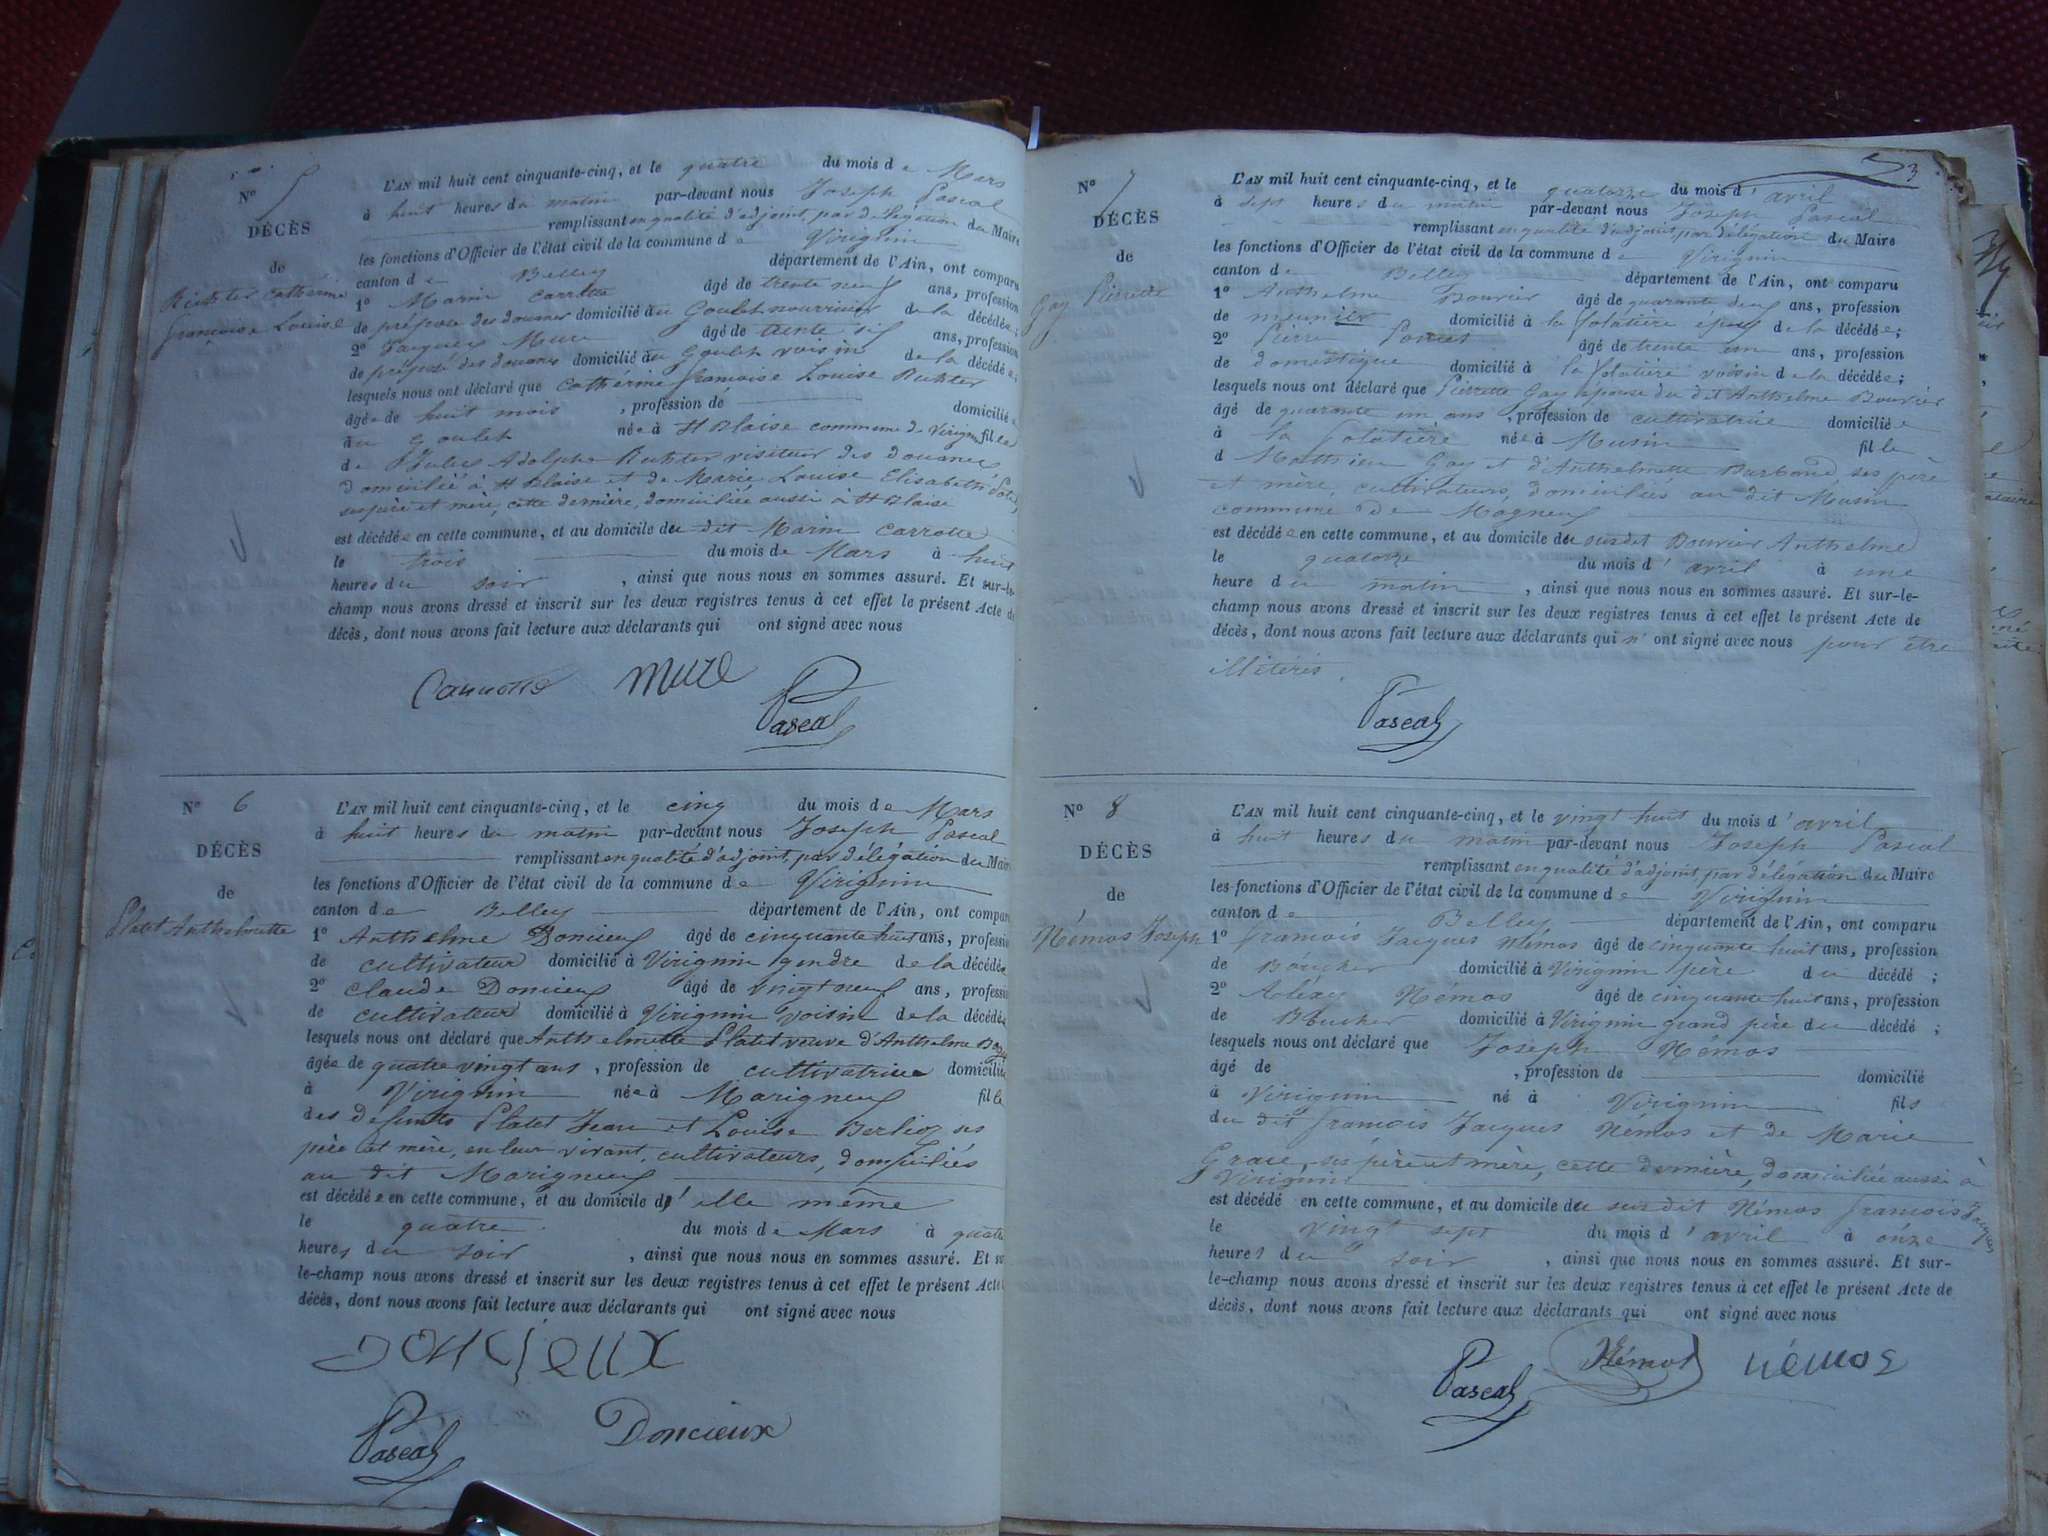 N° 5
DÉCÈS
de
Richter Catherine
françoise Louise
L'AN mil huit cent cinquante-cinq, et le quatre du mois de Mars
à huit heures du matin par-devant nous Joseph Pascal
remplissant en qualité d'adjoint, par délégation du Maire
les fonctions d'Officier de l'état civil de la commune de Virignin
canton de Belley département de l'Ain, ont comparu
1° Marin Carrotte âgé de trente neuf ans, profession
de préposé des douanes domicilié au Goulet nourricier de la décédée;
2° Jacques Mure âgé de trente six ans, profession
de préposé des douanes domicilié au Goulet voisin de la décédée;
lesquels nous ont déclaré que Cathérine françoise Louise Richter
âgée de huit mois , profession de domiciliée
au Goulet née à St Blaise commune de Virignin fille
de Jules Adolphe Richter visiteur des douanes
domicilié à St Blaise et de Marie Louise Elisabeth
ses père et mère, cette dernière, domiciliée aussi à St Blaise
est décédée en cette commune, et au domicile du dit Marin Carrotte
le trois du mois de Mars à huit
heures du soir , ainsi que nous nous en sommes assuré. Et sur-le-
champ nous avons dressé et inscrit sur les deux registres tenus à cet effet le présent Acte de
décès, dont nous avons fait lecture aux déclarants qui ont signé avec nous
Carrotte Mure
Pascal
N° 6
DÉCÈS
de
Platet Anthelmette
L'AN mil huit cent cinquante-cinq, et le cinq du mois de Mars
à huit heures du matin par-devant nous Joseph Pascal
remplissant en qualité d'adjoint, par délégation du Maire
les fonctions d'Officier de l'état civil de la commune de Virignin
canton de Belley département de l'Ain, ont comparu
1° Anthelme Doncieux âgé de cinquante huit ans, profession
de cultivateur domicilié à Virignin gendre de la décédée
2° Claude Doncieux âgé de vingt neuf ans, profession
de cultivateur domicilié à Virignin voisin de la décédée
lesquels nous ont déclaré que Anthelmette Platet veuve d'Anthelme
âgée de quatre vingt ans , profession de cultivatrice domiciliée
à Virignin née à Marigneux fille
des défunts Platet Jean et Louise Berlioz ses
père et mère, en leur vivant, cultivateurs, domiciliés
au dit Marigneux
est décédée en cette commune, et au domicile d'elle même
le quatre du mois de Mars à quatre
heures du soir , ainsi que nous nous en sommes assuré. Et sur-
le-champ nous avons dressé et inscrit sur les deux registres tenus à cet effet le présent Acte
décès, dont nous avons fait lecture aux déclarants qui ont signé avec nous
Doncieux
Pascal Doncieux
3
N° 7
DÉCÈS
de
Gay Pierrette
L'AN mil huit cent cinquante-cinq, et le quatorze du mois d'avril
à sept heures du matin par-devant nous Joseph Pascal
remplissant en qualité d'adjoint, par délégation du Maire
les fonctions d'Officier de l'état civil de la commune de Virignin
canton de Belley département de l'Ain, ont comparu
1° Anthelme Bouvier âgé de quarante deux ans, profession
de meunier domicilié à la folatière époux de la décédée;
2° Pierre Poncet âgé de trente un ans, profession
de domestique domicilié à la folatière voisin de la décédée;
lesquels nous ont déclaré que Pierrette Gay épouse du dit Anthelme Bouvier
âgé de quarante un ans , profession de cultivatrice domiciliée
à la folatière née à Musin fille
d Matthieu Gay et d'Anthelmette Barbond, ses père
et mère, cultivateurs, domiciliés au dit Musin
commune de Magneux
est décédée en cette commune, et au domicile du susdit Bouvier Anthelme
le quatorze du mois d'avril à une
heure du matin , ainsi que nous nous en sommes assuré. Et sur-le-
champ nous avons dressé et inscrit sur les deux registres tenus à cet effet le présent Acte de
décès, dont nous avons fait lecture aux déclarants qui n'ont signé avec nous pour être
illitérés.
Pascal
N° 8
DÉCÈS
de
Némos Joseph
L'AN mil huit cent cinquante-cinq, et le vingt huit du mois d'avril
à huit heures du matin par-devant nous Joseph Pascal
remplissant en qualité d'adjoint par délégation du Maire
les fonctions d'Officier de l'état civil de la commune de Virignin
canton de Belley département de l'Ain, ont comparu
1° françois Jacques Némos âgé de cinquante huit ans, profession
de Boucher domicilié à Virignin père du décédé ;
2° Alexis Némos âgé de cinquante huit ans, profession
de Boucher domicilié à Virignin grand père du décédé ;
lesquels nous ont déclaré que Joseph Némos
âgé de , profession de domicilié
à Virignin né à Virignin fils
du dit françois Jacques Némos et de Marie
Grace, ses père et mère, cette dernière, domiciliée aussi à
Virignin
est décédé en cette commune, et au domicile du susdit Némos françois Jacques
le vingt sept du mois d'avril à onze
heures du soir , ainsi que nous nous en sommes assuré. Et sur-
le-champ nous avons dressé et inscrit sur les deux registres tenus à cet effet le présent Acte de
décès, dont nous avons fait lecture aux déclarants qui ont signé avec nous
Pascal Némos némos